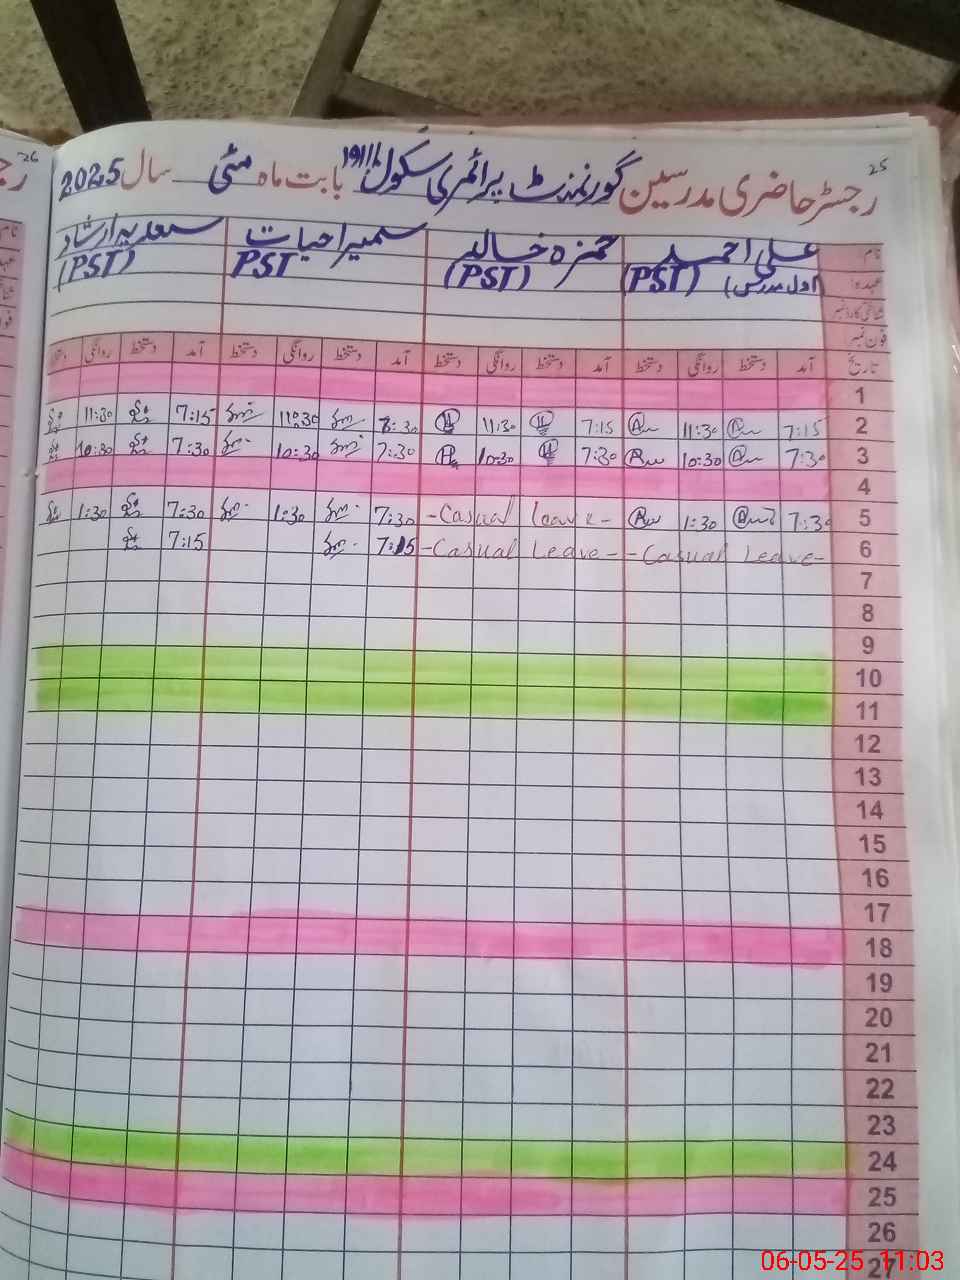 26
25
رجسٹر حاضری مدرسین گورنمنٹ پرائمری سکول بابت ماہ مئی سال 2025
نام علی احمد حمزہ خالد سمیرا حیات سعدیہ ارشاد
عہدہ (اول مدرس) (PST) (PST) PST (PST)
شناختی کارڈ نمبر
فون نمبر
تاریخ آمد دستخط روانگی دستخط آمد دستخط روانگی دستخط آمد دستخط روانگی دستخط آمد دستخط روانگی
1
2 7:15 11:30 7:15 11:30 11:30 7:15 11:30
3 7:30 10:30 7:30 10:30 7:30 10:30 7:30 10:30
4
5 7:30 1:30 -Casual leave- 7:30 1:30 7:30 1:30
6 -Casual Leave- -Casual Leave- 7:15 7:15
7
8
9
10
11
12
13
14
15
16
17
18
19
20
21
22
23
24
25
26
27
06-05-25 11:03